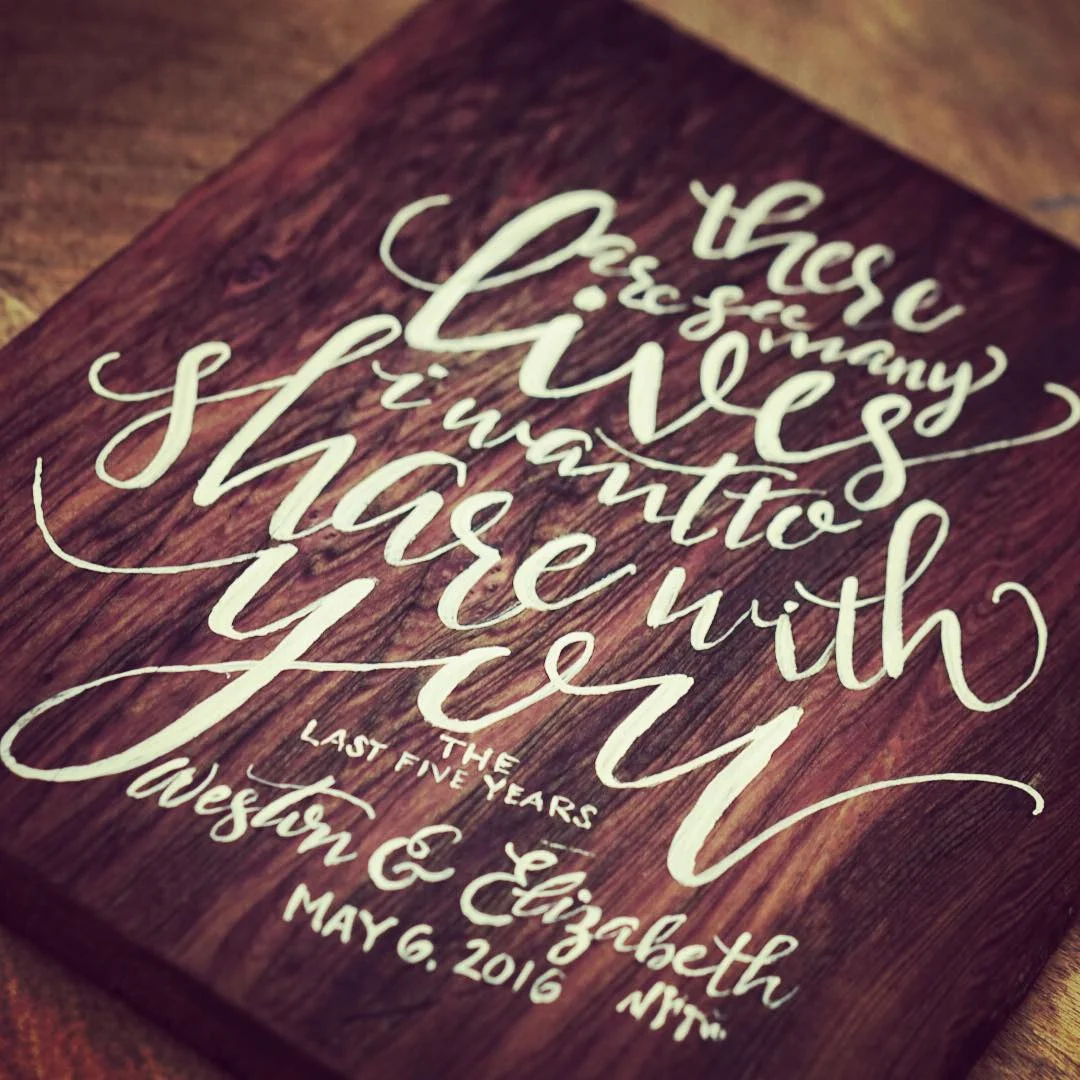 there
are so many
lives
i want to
share with
you
THE
LAST FIVE YEARS
Weston & Elizabeth
MAY 6. 2016